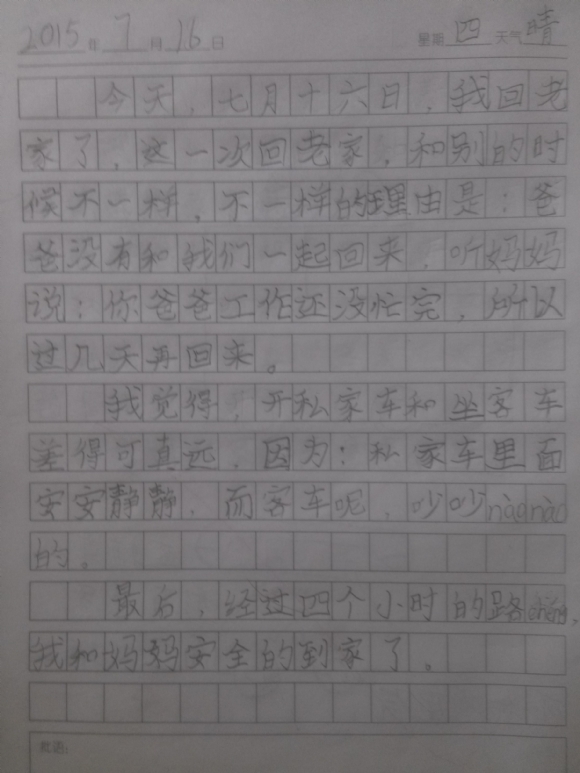 2015年7月16日 星期四天气晴
今天，七月十六日，我回老
家了，这一次回老家，和别的时
候不一样，不一样的理由是：爸
爸没有和我们一起回来，听妈妈
说：你爸爸工作还没忙完，所以
过几天再回来。
我觉得，开私家车和坐客车
差得可真远，因为：私家车里面
安安静静，而客车呢，吵吵nàonào
的。
最后，经过四个小时的路chéng，
我和妈妈安全的到家了。
批语：